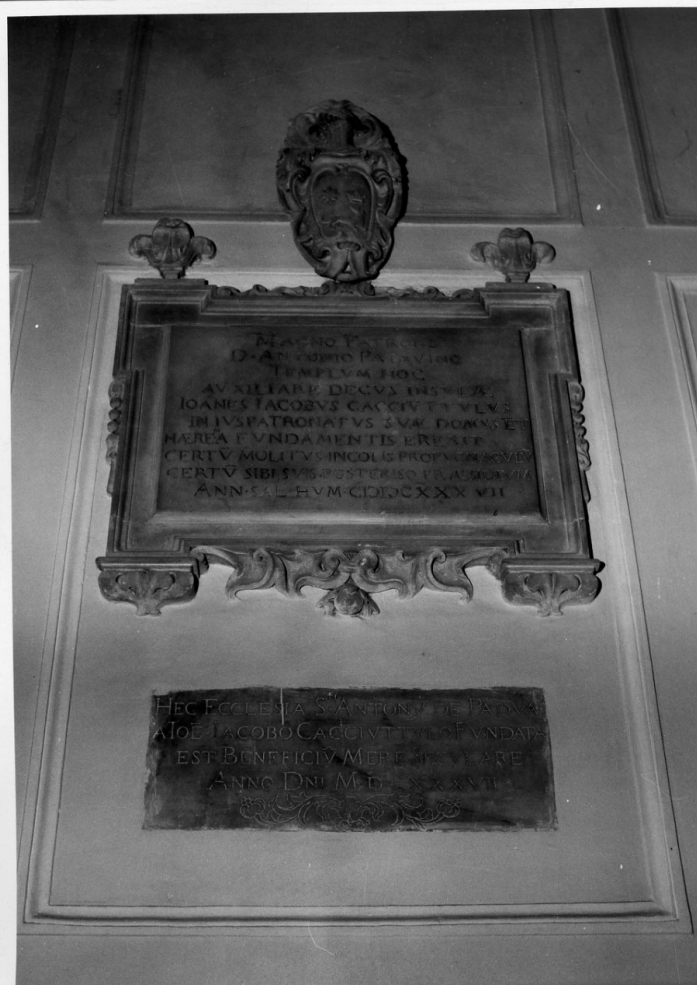 MAGNO PATRONO
D. ANTONIO PATAVINO
TEMPLVM HOC
AVXILIARE DECVS INSVLÆ
IOANES IACOBVS CACCIVTTVLVS
IN IVSPATRONATVS SVÆ DOMVS ET
HÆREA FVNDAMENTIS EREXIT
CERTV̄ MVLITVS INCOLIS
CERTV̄ SIBI SVIS POSTERISQ
ANN. SAL. HVM. CIƆIƆCXXXVII
HEC ECCLESIA S. ANTONY DE PADVA
A IOĒ IACOBO CACCIVTTVLO FVNDATA
EST BENEFICIV̄ MERE SECVLARE
ANNO DNI M.D.C.XXXVII